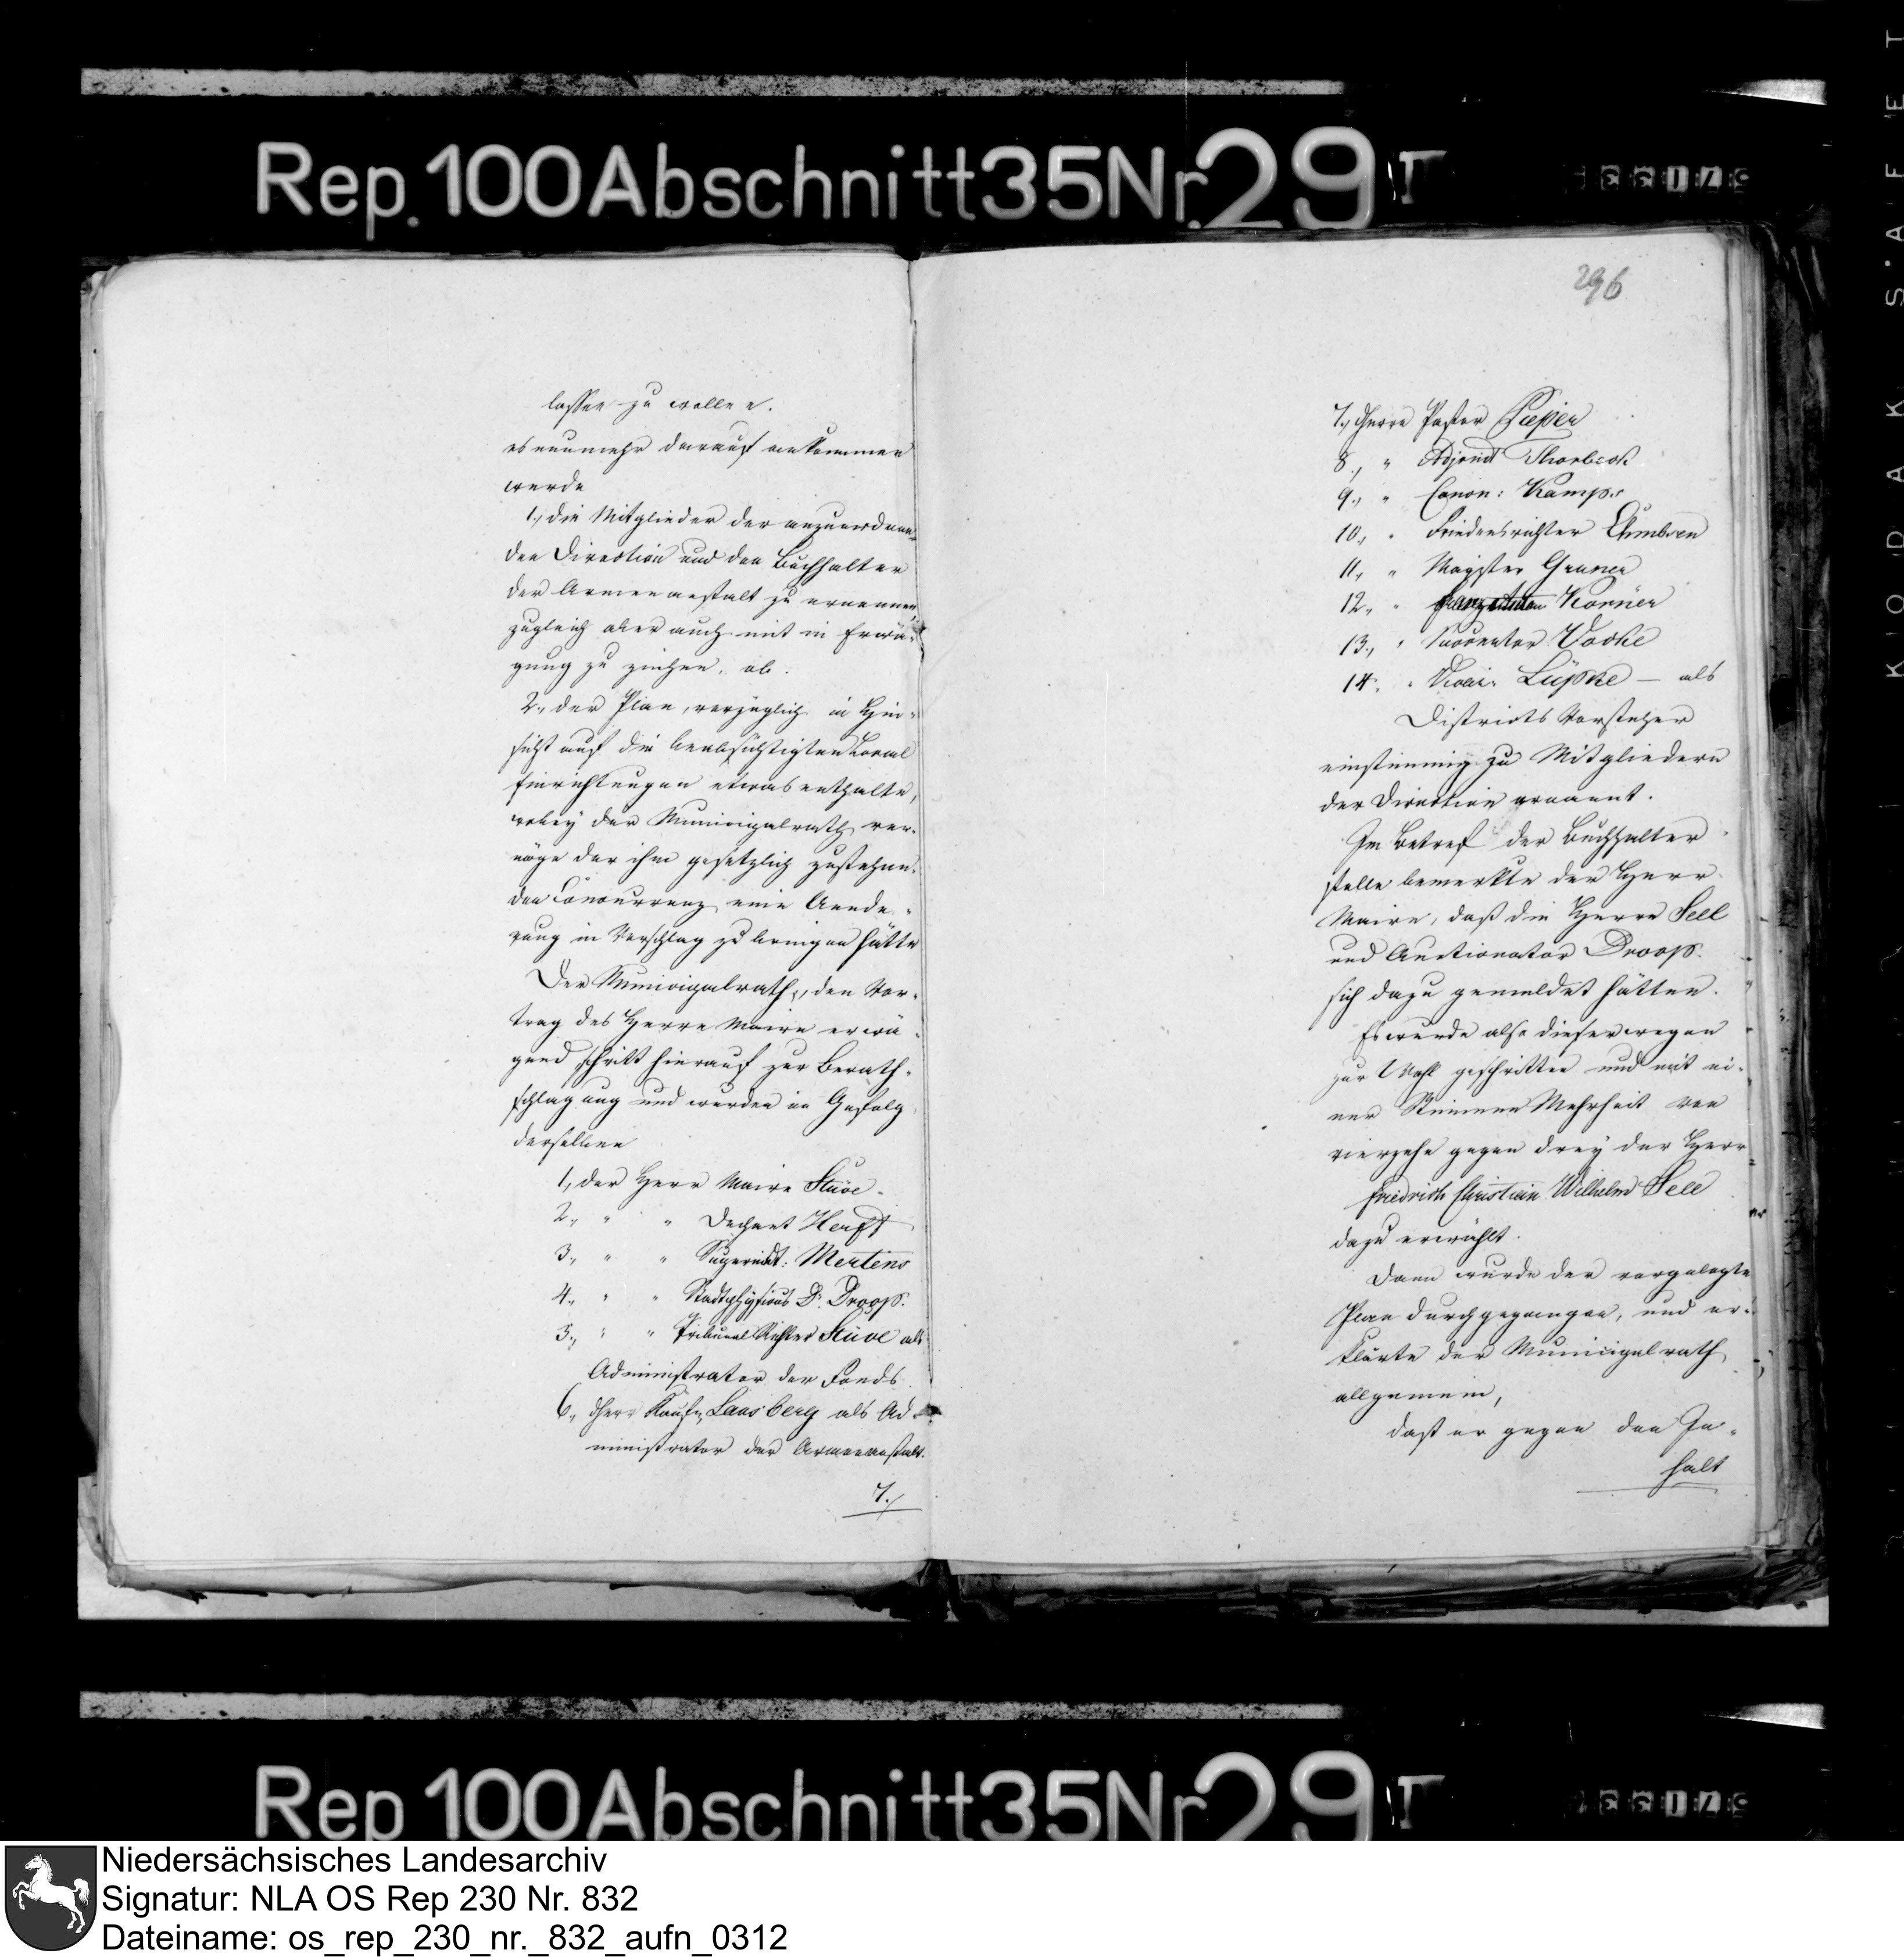 Rep. 100 Abschnitt 35 Nr. 29 I
lassen zu wollen.
es nunmehr darauf ankommen
werde
1., die Mitglieder der anzuordnen=
den Direction und den Buchhalter
der Armenanstalt zu ernennen,
zugleich aber auch mit in Erwä=
gung zu ziehen, ob.
2., der Plan, vorzüglich in Hin=
sicht auf die beabsichtigten Local
Einrichtungen etwas enthalte,
wobey der Municipalrath ver=
möge der ihm gesetzlich zustehen=
den Concurrenz eine Aende=
rung in Vorschlag zu bringen hätte
Der Municipalrath, den Vor=
trag des Herrn Maire erwä=
gend schritt hierauf zur Berath=
schlagung und wurden in Gefolg
derselben
1., der Herr Maire Stüve.
2., " " Dechant Herft
3., " " Superindt: Mertens
4., " " Stadtphysicus Dr. Droop.
5., " " Tribunal Richter Stüve als
Administrator der Fonds
6., dHerr Kaufm. Landsberg als Ad=
ministrator der Armenanstalt.
7./
296
7., dHerr Pastor Pieper
8., " Adjunct Thorbeck
9., " Canon: Kamps
10., " Friedensrichter Ehmbsen
11., " Magister Gruner
12., " Körner
13., " Procurator Vocke
14., " Vicar. Lüpke – als
Districts Vorsteher
einstimmig zu Mitgliedern
der Direction ernannt.
Im Betref der Buchhalter
stelle bemerkte der Herr
Maire, daß die Herrn Sell
und Auctionator Droop.
sich dazu gemeldet hätten.
Es wurde also dieserwegen
zur Wahl geschritten und mit ei=
ner Stimmen Mehrheit von
vierzehn gegen drey der Herr
Friedrich Christian Wilhelm Sell
dazu erwählt.
Dann wurde der vorgelegte
Plan durchgegangen, und er=
klärte der Municipalrath
allgemein,
daß er gegen den In=
halt
Rep 100 Abschnitt 35 Nr 29 I
KODAK SAFET
Niedersächsisches Landesarchiv
Signatur: NLA OS Rep 230 Nr. 832
Dateiname: os_rep_230_nr._832_aufn_0312